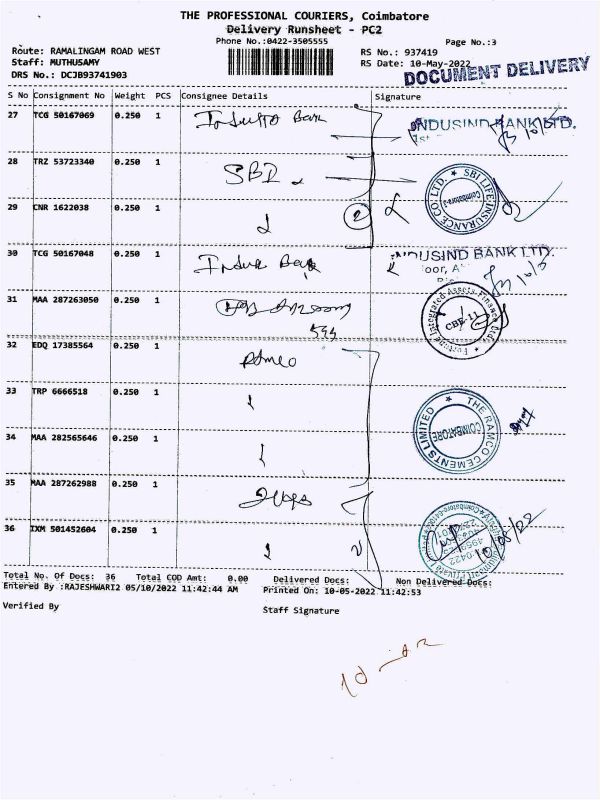 THE PROFESSIONAL COURIERS, Coimbatore
Delivery Runsheet - PC2
Phone No.:0422-3505555
Page No.:3
Route: RAMALINGAM ROAD WEST
RS No.: 937419
Staff: MUTHUSAMY
RS Date: 10-May-2022
DRS No.: DCJB93741903
DOCUMENT DELIVERY
S No Consignment No Weight PCS Consignee Details Signature
27 TCG 50167069 0.250 1
INDUSIND BANK LTD.
28 TRZ 53723340 0.250 1 SBI
SBI LIFE INSURANCE CO. LTD. Coimbatore
29 CNR 1622038 0.250 1 2
30 TCG 50167048 0.250 1
INDUSIND BANK LTD.
31 MAA 287263050 0.250 1
Fortune Integrated Assets Finance Ltd. CBE-11
32 EDQ 17385564 0.250 1
33 TRP 6666518 0.250 1
THE RAMCO CEMENTS LIMITED COIMBATORE
34 MAA 282565646 0.250 1
35 MAA 287262988 0.250 1
36 IXM 501452604 0.250 1
Total No. Of Docs: 36 Total COD Amt: 0.00 Delivered Docs: Non Delivered Docs:
Entered By :RAJESHWARI2 05/10/2022 11:42:44 AM Printed On: 10-05-2022 11:42:53
Verified By
Staff Signature